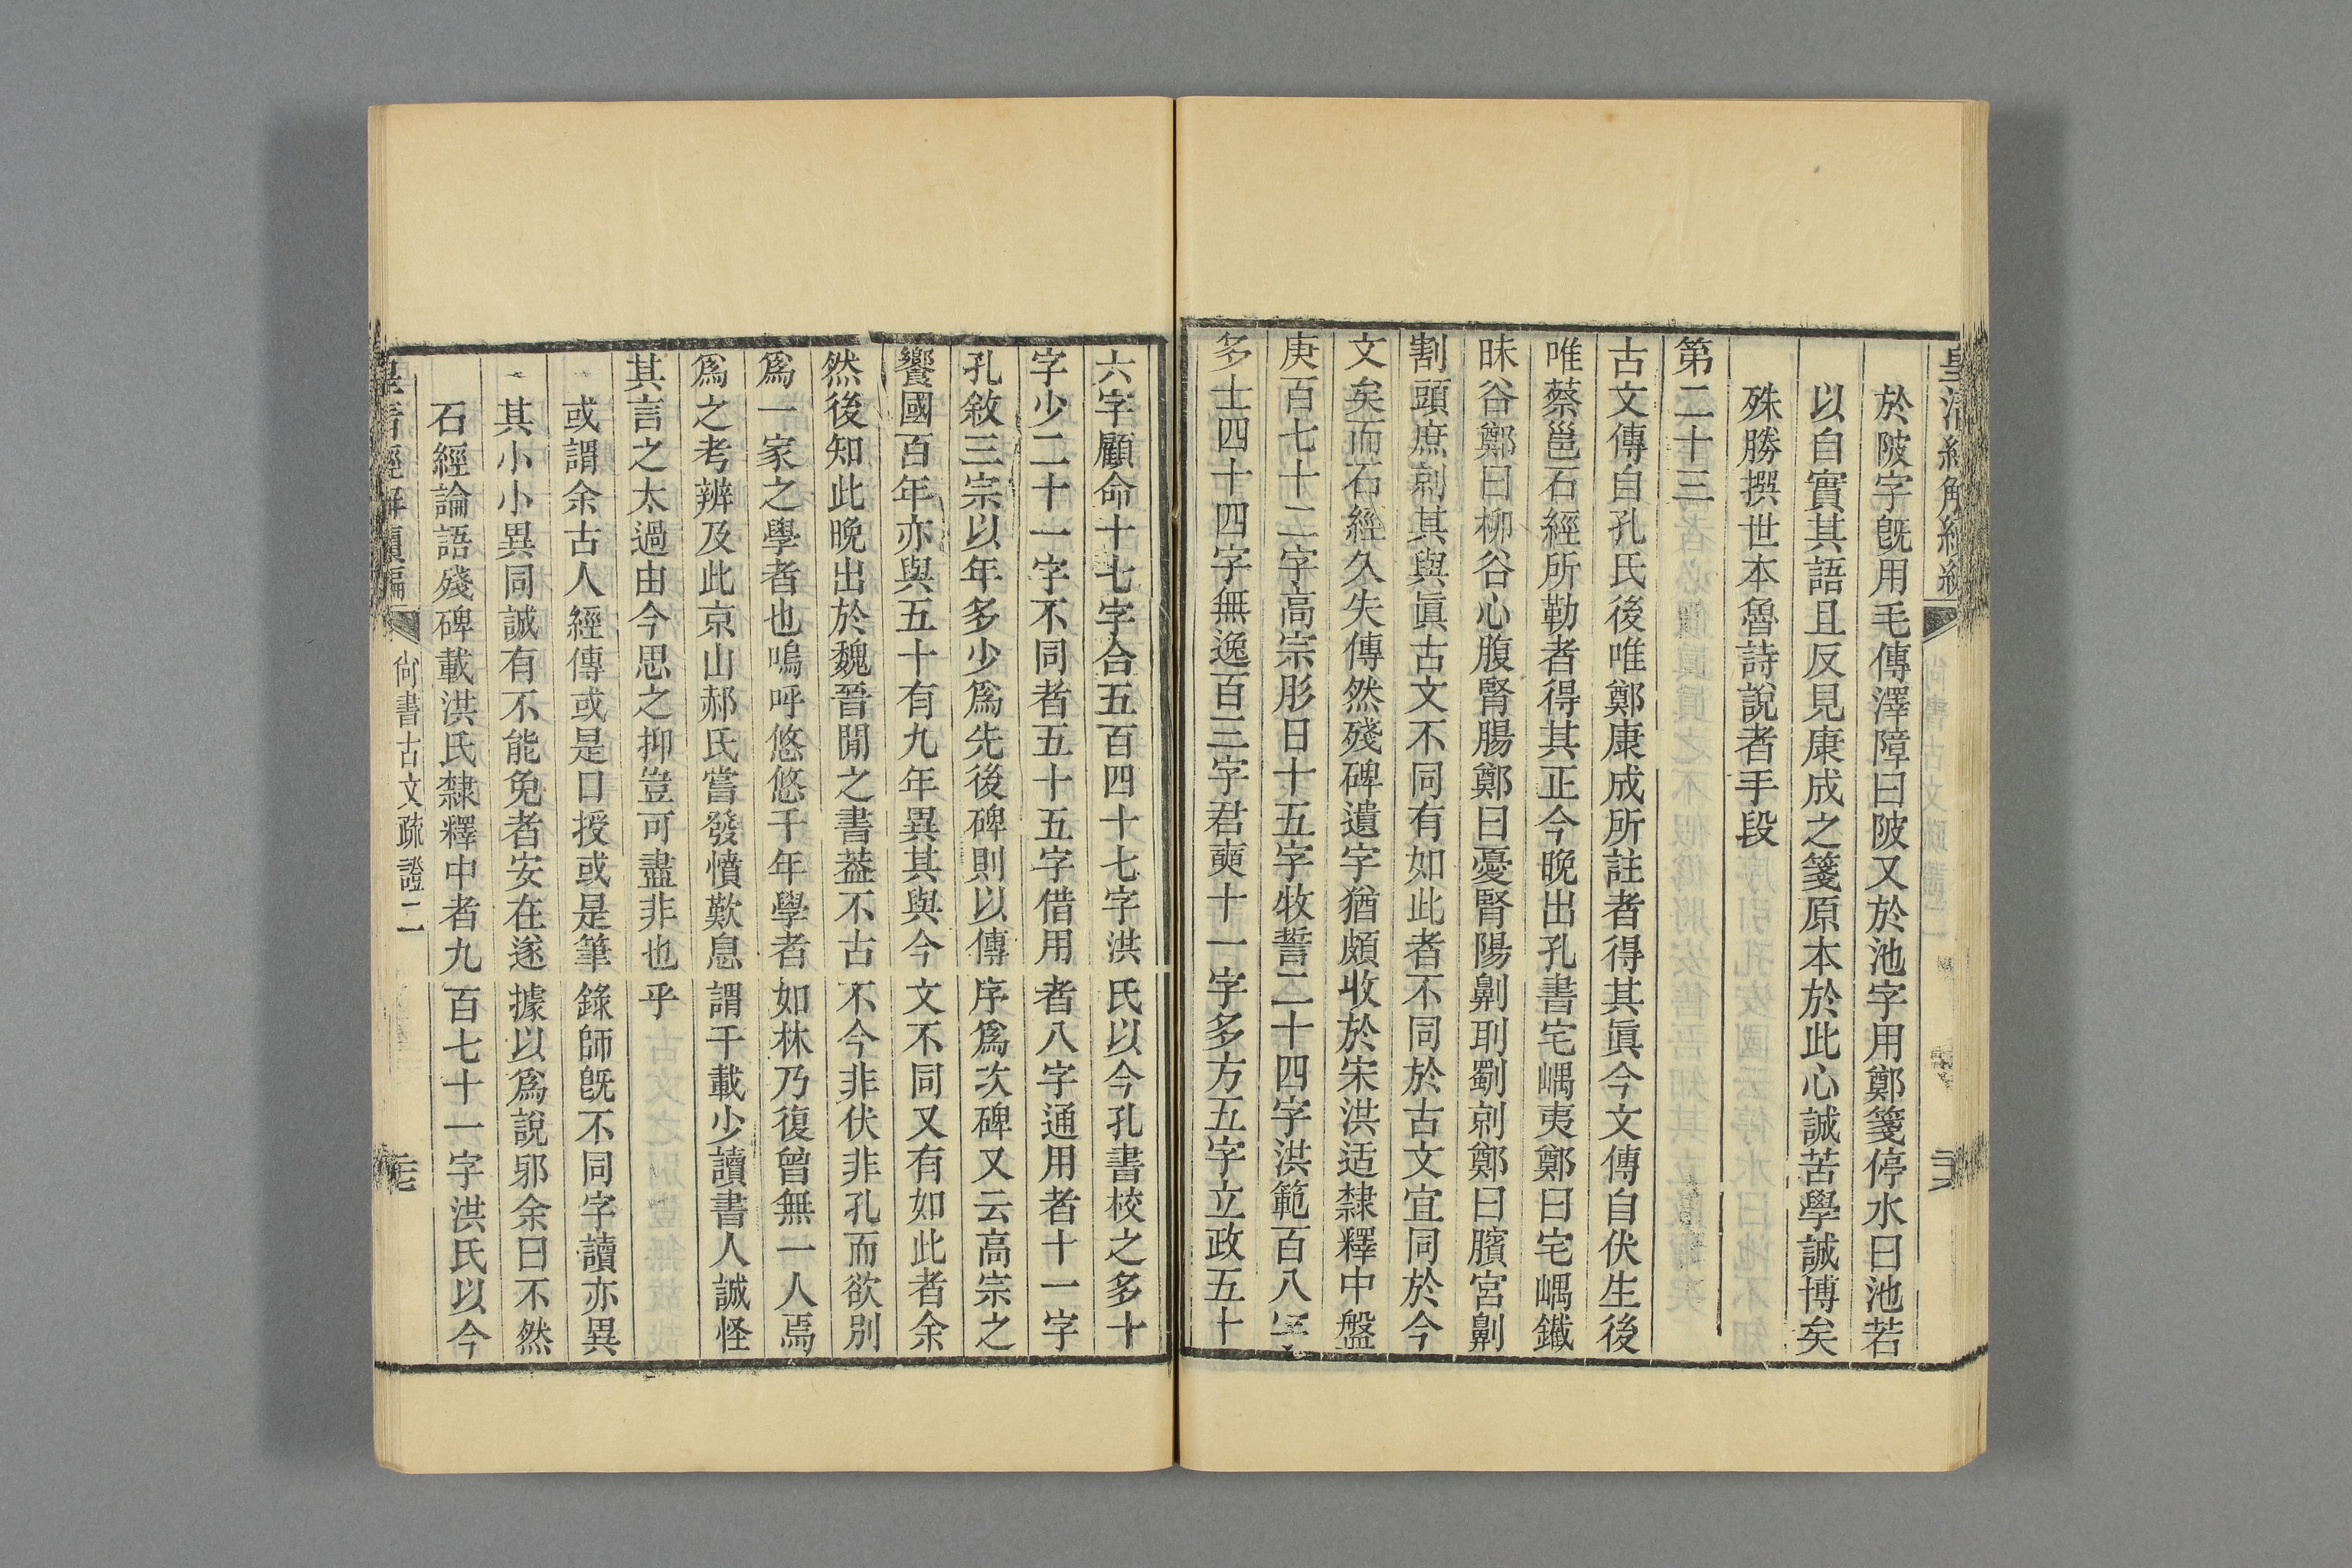 於陂字旣用毛傳澤障曰陂又於池字用鄭箋停水曰池若
以自實其語且反見康成之箋原本於此心誠苦學誠博矣
殊勝撰世本魯詩說者手段
第二十三
古文傳自孔氏後唯鄭康成所註者得其眞今文傳自伏生後
唯蔡邕石經所勒者得其正今晚出孔書宅嵎夷鄭曰宅嵎鐵
昧谷鄭曰柳谷心腹腎腸鄭曰憂腎陽劓刵劅剠鄭曰臏宮劓
割頭庶剠其與眞古文不同有如此者不同於古文宜同於今
文矣而石經久失傳然殘碑遺字猶頗收於宋洪适隸釋中盤
庚百七十二字高宗肜日十五字牧誓二十四字洪範百八字
多士四十四字無逸百三字君奭十一字多方五字立政五十
六字顧命十七字合五百四十七字洪氏以今孔書校之多十
字少二十一字不同者五十五字借用者八字通用者十一字
孔敘三宗以年多少爲先後碑則以傳序爲次碑又云高宗之
饗國百年亦與五十有九年異其與今文不同又有如此者余
然後知此晚出於魏晉閒之書葢不古不今非伏非孔而欲別
爲一家之學者也嗚呼悠悠千年學者如林乃復曾無一人焉
爲之考辨及此京山郝氏嘗發憤歎息謂千載少讀書人誠怪
其言之太過由今思之抑豈可盡非也乎
或謂余古人經傳或是口授或是筆錄師旣不同字讀亦異
其小小異同誠有不能免者安在遂據以爲說邪余曰不然
石經論語殘碑載洪氏隸釋中者九百七十一字洪氏以今
皇清經解續編 尙書古文疏證二